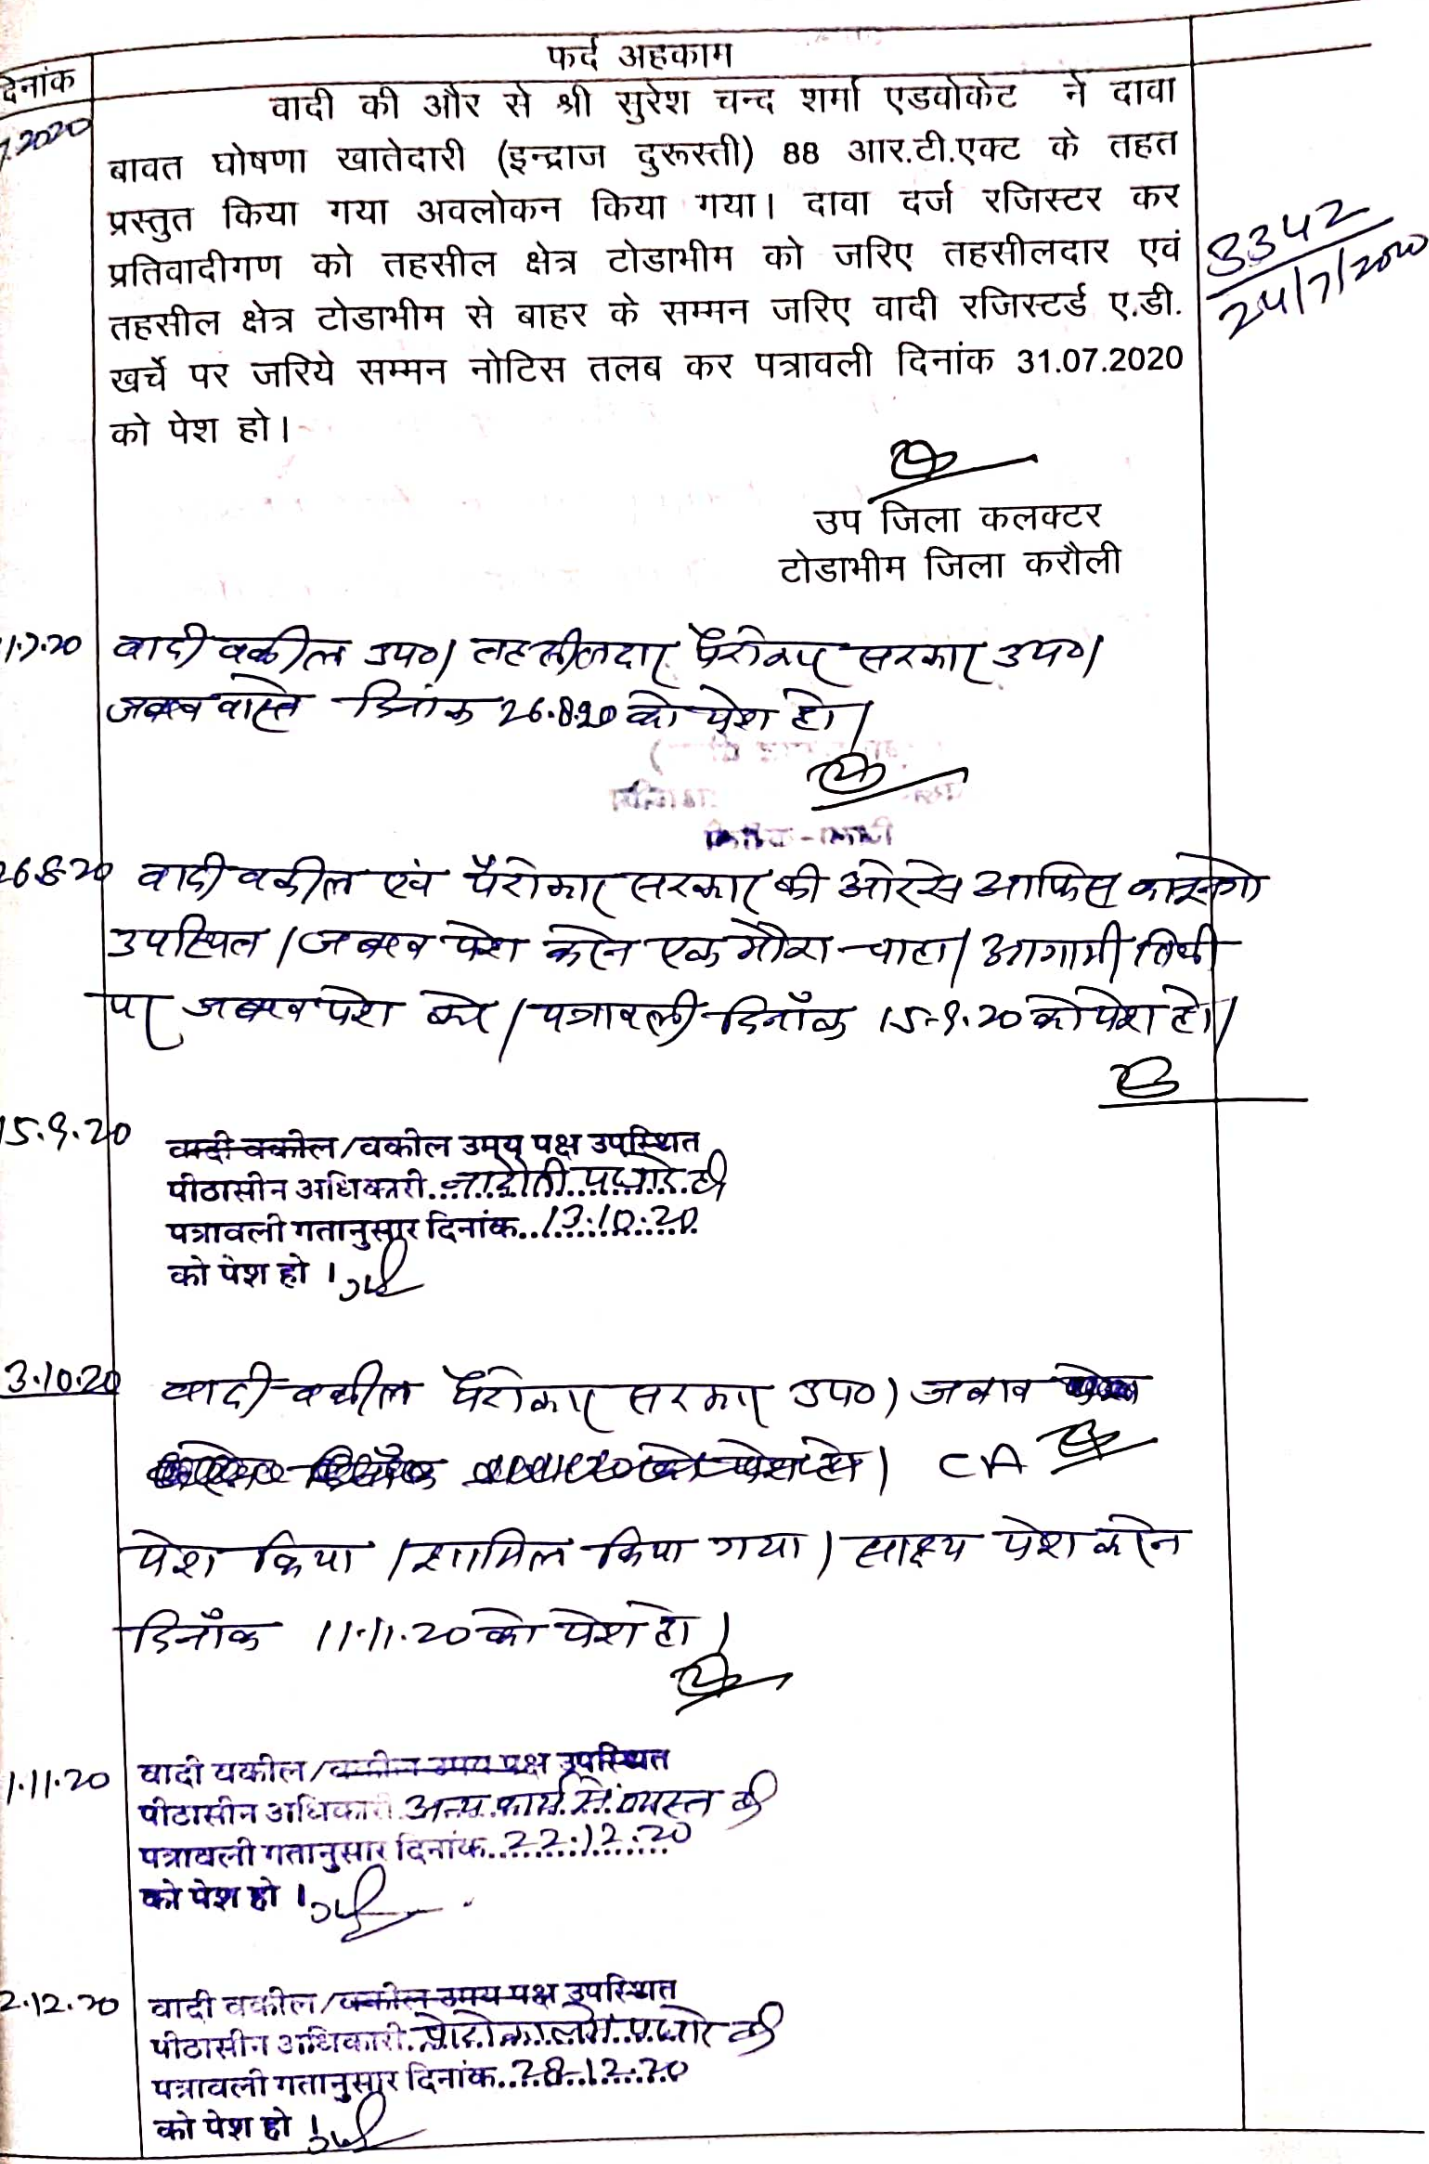 फर्द अहकाम
दिनांक
वादी की और से श्री सुरेश चन्द शर्मा एडवोकेट ने दावा
.2020
बावत घोषणा खातेदारी (इन्द्राज दुरूस्ती) 88 आर.टी.एक्ट के तहत
प्रस्तुत किया गया अवलोकन किया गया। दावा दर्ज रजिस्टर कर
प्रतिवादीगण को तहसील क्षेत्र टोडाभीम को जरिए तहसीलदार एवं
तहसील क्षेत्र टोडाभीम से बाहर के सम्मन जरिए वादी रजिस्टर्ड ए.डी.
खर्चे पर जरिये सम्मन नोटिस तलब कर पत्रावली दिनांक 31.07.2020
को पेश हो।
3342
24/7/2020
उप जिला कलक्टर
टोडाभीम जिला करौली
1.7.20 वादी वकील उप०। तहसीलदार पैरोकार सरकार उप०।
जबाब वास्ते दिनांक 26.8.20 को पेश हो।
26.8.20 वादी वकील एवं पैरोकार सरकार की ओर से आफिस कानूनगो
उपस्थित। जबाब पेश करने एक मौका चाहा। आगामी तिथी
पर जबाब पेश करे। पत्रावली दिनाँक 15.9.20 को पेश हो।
15.9.20 वादी वकील/वकील उमय पक्ष उपस्थित
पीठासीन अधिकारी नादौती पधारे है
पत्रावली गतानुसार दिनांक..13.10.20
को पेश हो।
3.10.20 वादी वकील पैरोकार सरकार उप०। जबाब
को पेश हो। CA
पेश किया। शामिल किया गया। साक्ष्य पेश करने
दिनाँक 11.11.20 को पेश हो।
1.11.20 वादी वकील/वकील उमय पक्ष उपस्थित
पीठासीन अधिकारी अन्य कार्य में व्यस्त है
पत्रावली गतानुसार दिनांक..22.12.20
को पेश हो।
2.12.20 वादी वकील/वकील उमय पक्ष उपस्थित
पीठासीन अधिकारी पधारे है
पत्रावली गतानुसार दिनांक..28.12.20
को पेश हो।